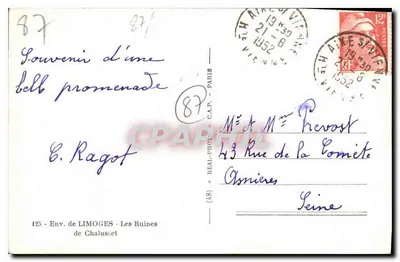 87
87/
Souvenir d'une
bell promenade
C. Ragot
125 - Env. de LIMOGES - Les Ruines
de Chalusset
(48) ★ REAL-PHOTO C.A.P. - PARIS
87
AIXE S/ VIENNE
19 H 30
21 - 8
1952
VIENNE
AIXE S/ VIENNE
19 H 30
21 - 8
1952
VIENNE
12F
CPARAMA
Mr et Mme Prevost
43 Rue de la Comète
Asnieres
Seine